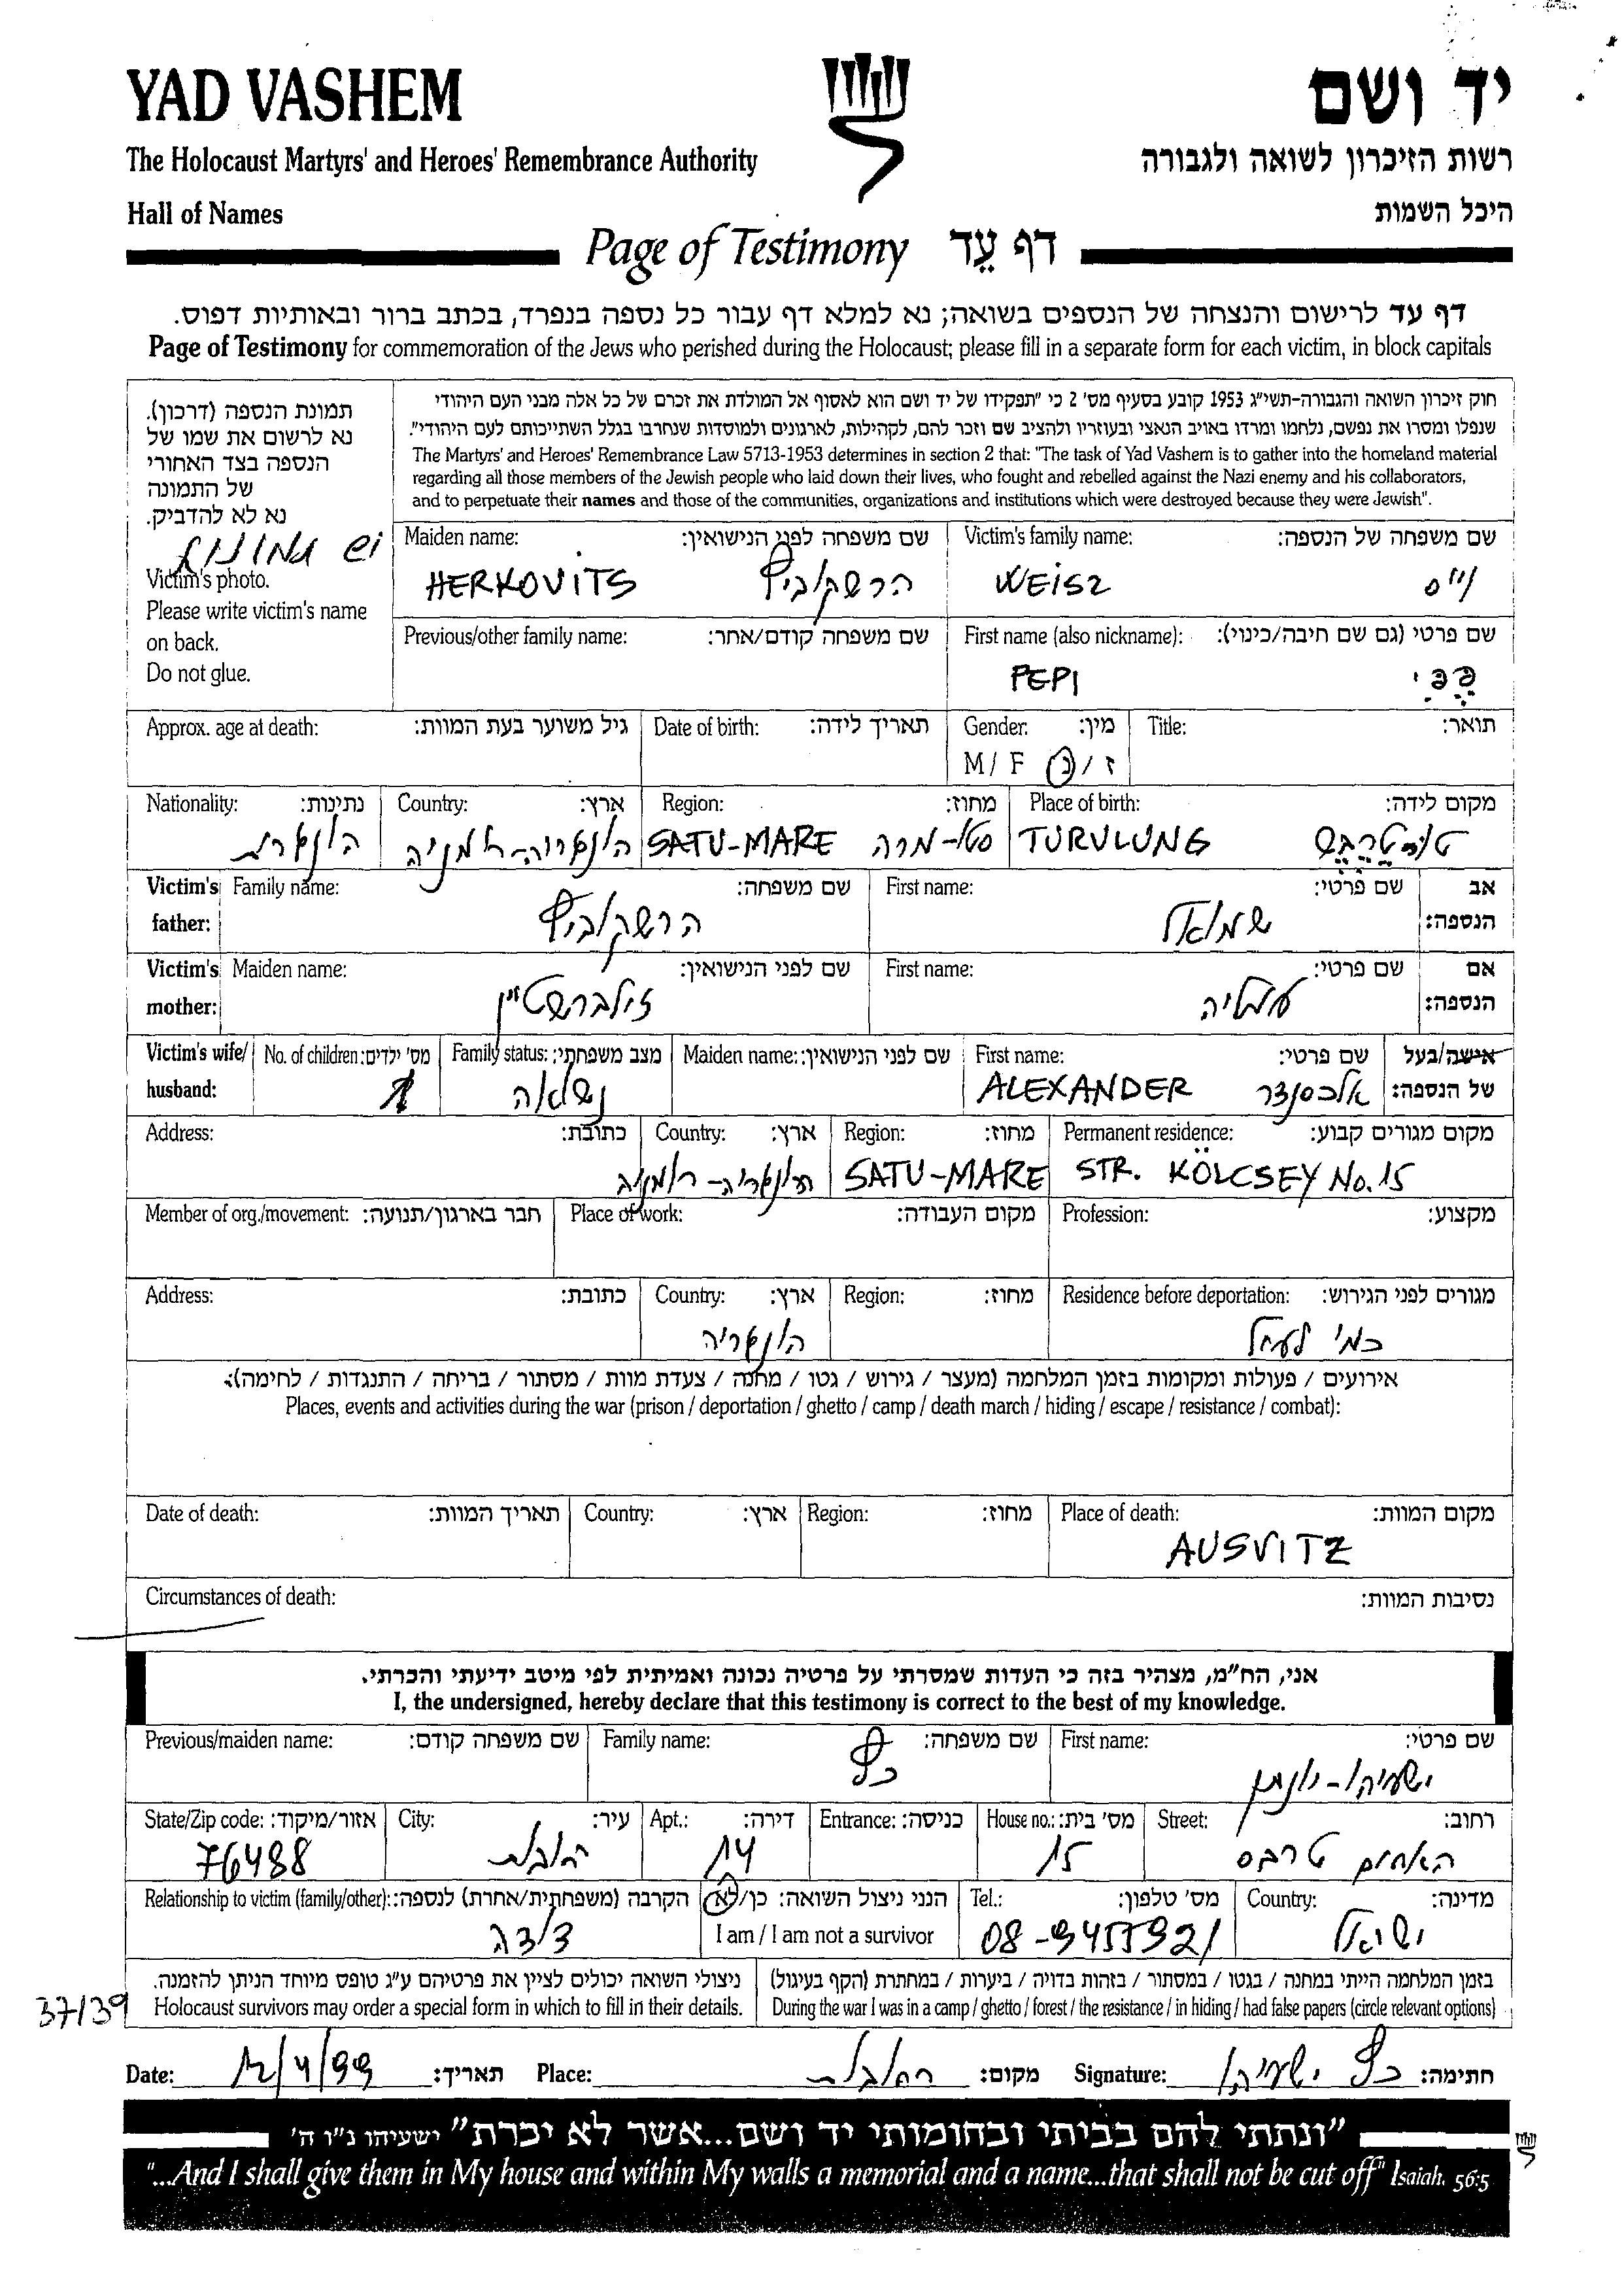 YAD VASHEM יד ושם
The Holocaust Martyrs' and Heroes' Remembrance Authority רשות הזיכרון לשואה ולגבורה
Hall of Names היכל השמות
Page of Testimony דף עֵד
דף עד לרישום והנצחה של הנספים בשואה; נא למלא דף עבור כל נספה בנפרד, בכתב ברור ובאותיות דפוס.
Page of Testimony for commemoration of the Jews who perished during the Holocaust; please fill in a separate form for each victim, in block capitals
תמונת הנספה (דרכון).
נא לרשום את שמו של
הנספה בצד האחורי
של התמונה
נא לא להדביק.
יש תמונות
Victim's photo.
Please write victim's name
on back.
Do not glue.
חוק זיכרון השואה והגבורה-תשי"ג 1953 קובע בסעיף מס' 2 כי "תפקידו של יד ושם הוא לאסוף אל המולדת את זכרם של כל אלה מבני העם היהודי
שנפלו ומסרו את נפשם, נלחמו ומרדו באויב הנאצי ובעוזריו ולהציב שם וזכר להם, לקהילות, לארגונים ולמוסדות שנחרבו בגלל השתייכותם לעם היהודי".
The Martyrs' and Heroes' Remembrance Law 5713-1953 determines in section 2 that: "The task of Yad Vashem is to gather into the homeland material
regarding all those members of the Jewish people who laid down their lives, who fought and rebelled against the Nazi enemy and his collaborators,
and to perpetuate their names and those of the communities, organizations and institutions which were destroyed because they were Jewish".
Maiden name: שם משפחה לפני הנישואין: Victim's family name: שם משפחה של הנספה:
HERKOVITS הרשקוביץ WEISZ וייס
Previous/other family name: שם משפחה קודם/אחר: First name (also nickname): שם פרטי (גם שם חיבה/כינוי):
PEPI פֶּפִּי
Approx. age at death: גיל משוער בעת המוות: Date of birth: תאריך לידה: Gender: מין: Title: תואר:
M / F ז / נ
Nationality: נתינות: Country: ארץ: Region: מחוז: Place of birth: מקום לידה:
הונגרית הונגריה-רומניה SATU-MARE סטו-מרה TURULUNG
Victim's Family name: שם משפחה: First name: שם פרטי: אב
father: הרשקוביץ שמואל הנספה:
Victim's Maiden name: שם לפני הנישואין: First name: שם פרטי: אם
mother: זילברשטיין עמליה הנספה:
Victim's wife/ No. of children: מס' ילדים: Family status: מצב משפחתי: Maiden name: שם לפני הנישואין: First name: שם פרטי: אישה/בעל
husband: 1 נשואה ALEXANDER אלכסנדר של הנספה:
Address: כתובת: Country: ארץ: Region: מחוז: Permanent residence: מקום מגורים קבוע:
הונגריה-רומניה SATU-MARE STR. KÖLCSEY No. 15
Member of org./movement: חבר בארגון/תנועה: Place of work: מקום העבודה: Profession: מקצוע:
Address: כתובת: Country: ארץ: Region: מחוז: Residence before deportation: מגורים לפני הגירוש:
הונגריה כמו לעיל
אירועים / פעולות ומקומות בזמן המלחמה (מעצר / גירוש / גטו / מחנה / צעדת מוות / מסתור / בריחה / התנגדות / לחימה):
Places, events and activities during the war (prison / deportation / ghetto / camp / death march / hiding / escape / resistance / combat):
Date of death: תאריך המוות: Country: ארץ: Region: מחוז: Place of death: מקום המוות:
AUSVITZ
Circumstances of death: נסיבות המוות:
אני, הח"מ, מצהיר בזה כי העדות שמסרתי על פרטיה נכונה ואמיתית לפי מיטב ידיעתי והכרתי.
I, the undersigned, hereby declare that this testimony is correct to the best of my knowledge.
Previous/maiden name: שם משפחה קודם: Family name: שם משפחה: First name: שם פרטי:
כץ ישעיהו-יונתן
State/Zip code: אזור/מיקוד: City: עיר: Apt.: דירה: Entrance: כניסה: House no.: מס' בית: Street: רחוב:
76488 רחובות 14 15 האחים טרבס
Relationship to victim (family/other): הקרבה (משפחתית/אחרת) לנספה: הנני ניצול השואה: כן/לא Tel.: מס' טלפון: Country: מדינה:
דודה I am / I am not a survivor 08-9455921 ישראל
ניצולי השואה יכולים לציין את פרטיהם ע"ג טופס מיוחד הניתן להזמנה. בזמן המלחמה הייתי במחנה / בגטו / במסתור / בזהות בדויה / ביערות / במחתרת (הקף בעיגול)
37/39 Holocaust survivors may order a special form in which to fill in their details. During the war I was in a camp / ghetto / forest / the resistance / in hiding / had false papers (circle relevant options)
Date: 12/4/99 תאריך: Place: רחובות מקום: Signature: כץ ישעיהו חתימה:
"ונתתי להם בביתי ובחומותי יד ושם...אשר לא יכרת" ישעיהו נ"ו ה'
"...And I shall give them in My house and within My walls a memorial and a name...that shall not be cut off" Isaiah. 56:5